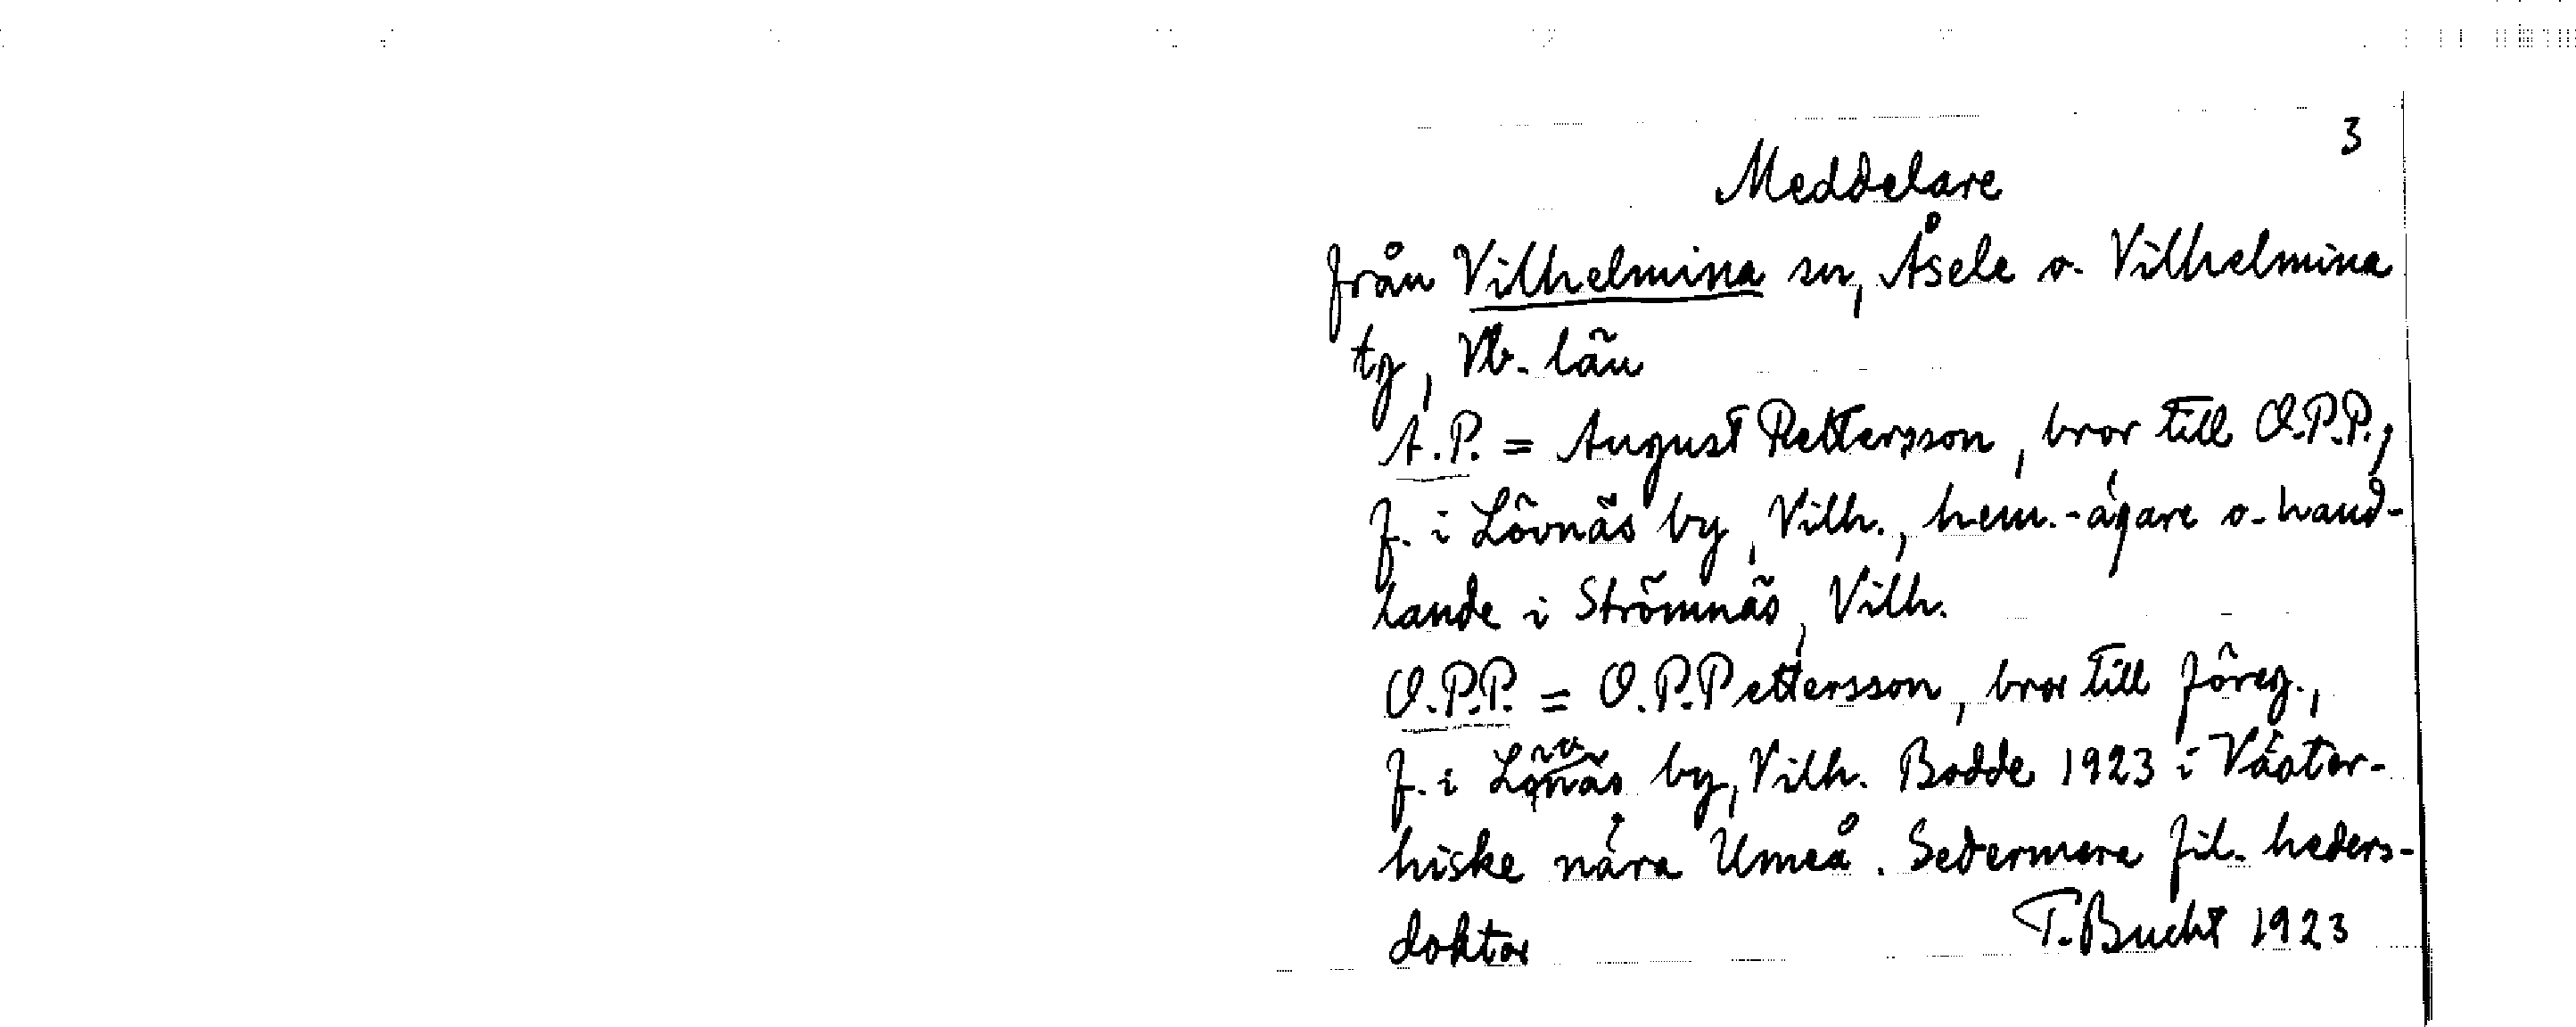 3
Meddelare
från Vilhelmina sn, Åsele o. Vilhelmina
tg, Vb. län
A.P. = August Pettersson, bror till O.P.P.,
f. i Lövnäs by, Vilh., hem.-ägare o. hand-
lande i Strömnäs, Vilh.
O.P.P. = O.P. Pettersson, bror till föreg.,
f. i Lövnäs by, Vilh. Bodde 1923 i Väster-
hiske nära Umeå. Sedermera fil. heders-
doktor T. Bucht 1923